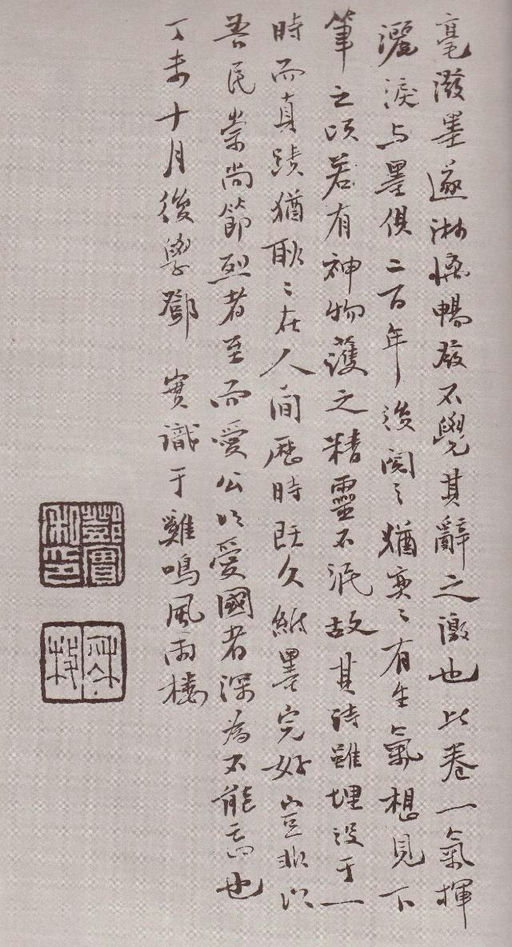 毫潑墨遂淋漓暢發不覺其辭之激也此卷一氣揮
灑淚与墨俱二百年後閱之猶奕々有生氣想見下
筆之頃若有神物護之精靈不泯故其詩雖埋沒于一
時而真蹟猶耿々在人間歷時既久紙墨完好豈非以
吾民崇尚節烈者至而愛公以愛國者深為不能忘也
丁未十月後學鄧 實識于雞鳴風雨樓
鄧實私印
秋枚